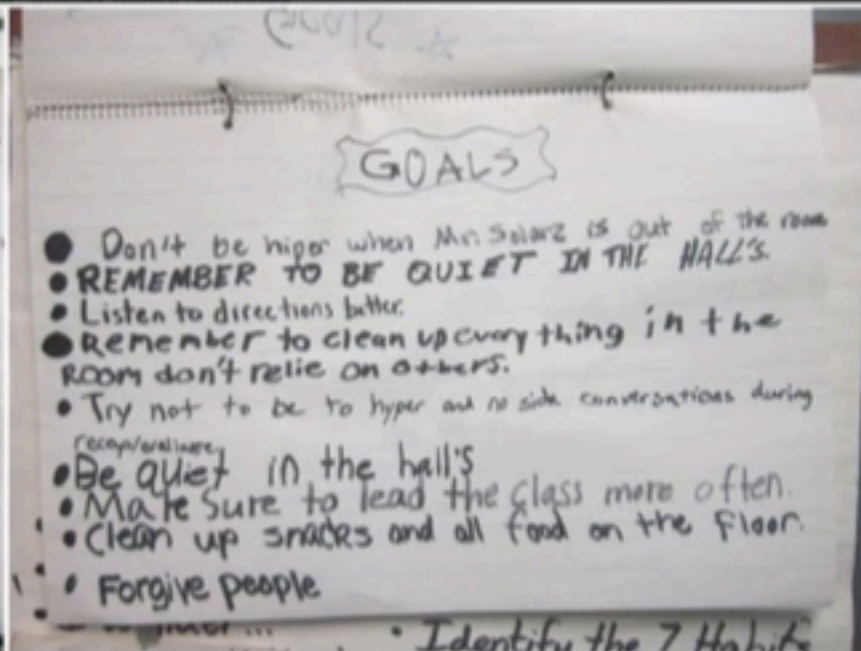 GOALS
Don't be hiper when Mr. Solarz is out of the room
REMEMBER TO BE QUIET IN THE HALL'S.
Listen to directions better.
Remember to clean up every thing in the
ROOM don't relie on others.
Try not to be to hyper and no side conversations during
Be quiet in the hall's
Make Sure to lead the class more often.
Clean up snacks and all food on the floor.
Forgive people
Identify the 7 Habits